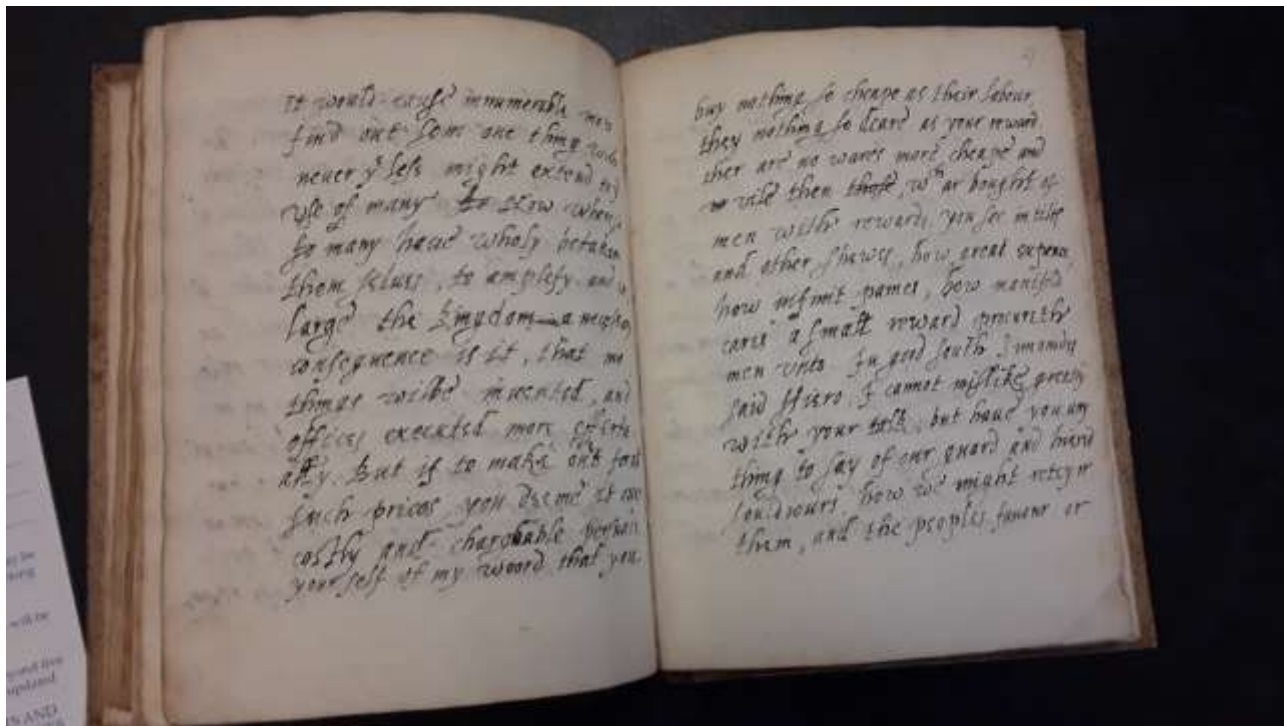 It would cause innumerable men
find out som one thing wch
never yͤ less might extend
use of many to grow when
so many have wholy betaken
them selves, to amplefy and
large the kingdom a
consequence is it, that mo
things wilbe invented, and
offices executed more
ally. But if to make out
such prices you deeme it
costly and chargable perswade
your self of my woord that you
buy nothing so cheape as their labour
they nothing so deare as your reward
ther are no wares more cheape and
vile then those, wͨʰ ar bought of
men with rewards. you see in
and other shewes, how great
how infinit paines, how manifold
cares a small reward procureth
men unto In good south Simonides
said Hiero I cannot mislike greatly
with your talk, but have you any
thing to say of our guard and hired
souldiours how we might reteyn
them, and the peoples favour or
will be
updated
AND